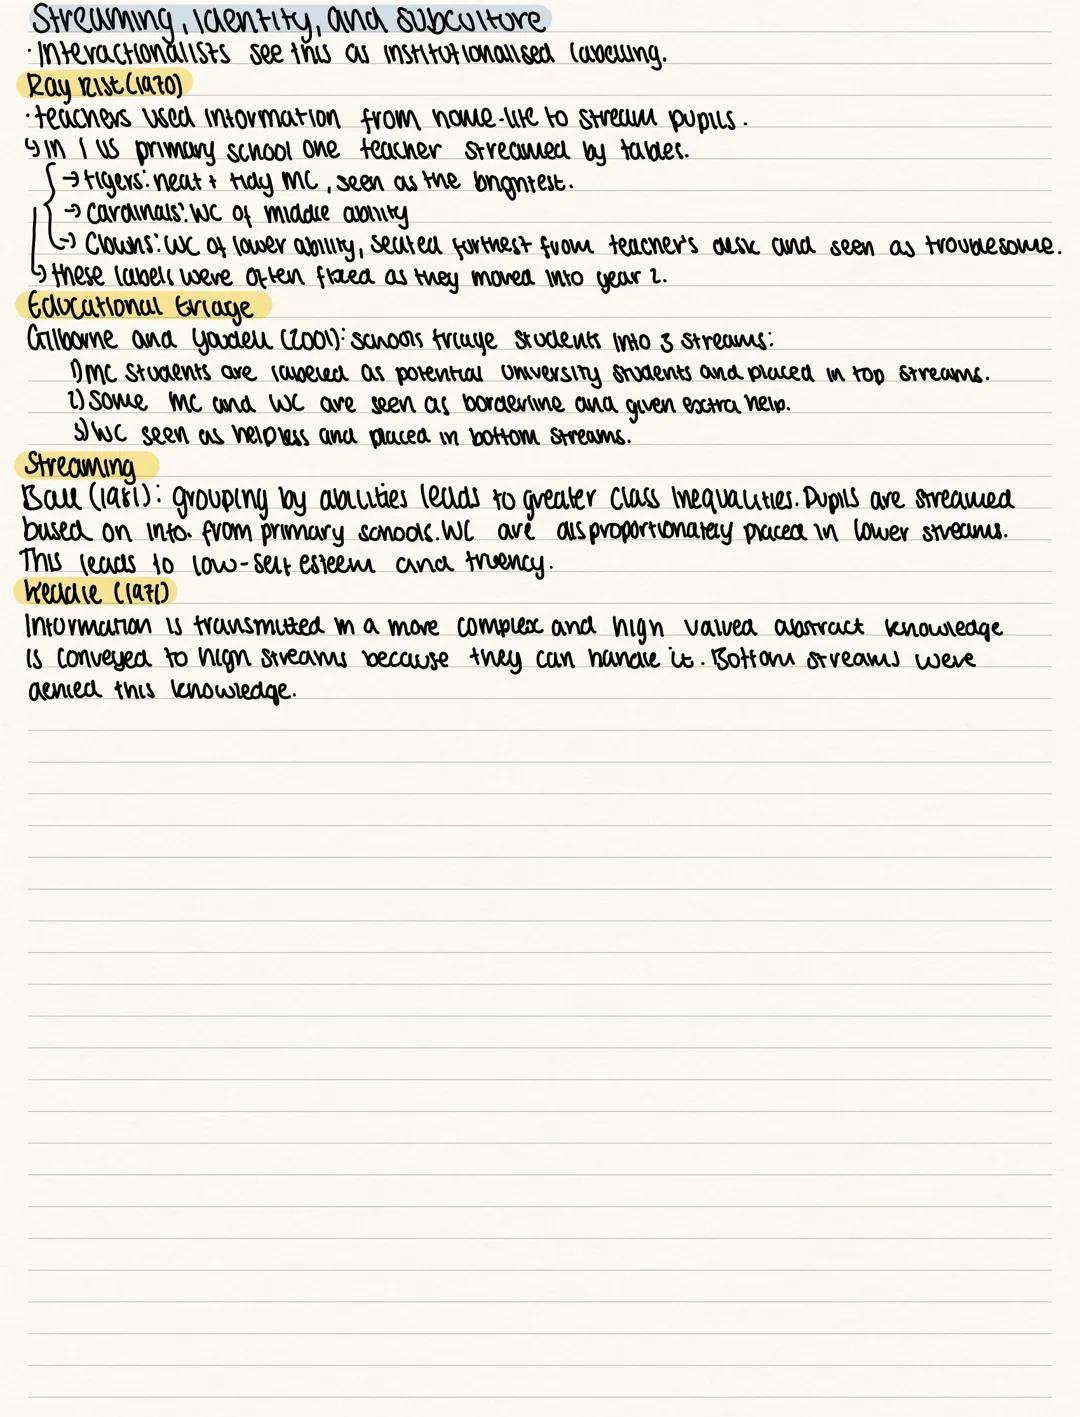 Streaming, Identity, and Subculture
· Interactionalists see this as institutionalised labelling.
Ray Rist (1970)
· teachers used information from home-life to stream pupils.
↳ in 1 US primary school one teacher streamed by tables.
→ tigers: neat + tidy MC, seen as the brightest.
→ Cardinals: WC of middle ability
→ Clowns: WC of lower ability, seated furthest from teacher's desk and seen as troublesome.
↳ these labels were often fixed as they moved into year 2.
Educational triage
Gillborne and Youdell (2001): schools triage students into 3 streams:
1) MC students are labelled as potential university students and placed in top streams.
2) Some MC and WC are seen as borderline and given extra help.
3) WC seen as helpless and placed in bottom streams.
Streaming
Ball (1981): grouping by abilities leads to greater class inequalities. Pupils are streamed
based on info. from primary schools. WC are disproportionately placed in lower streams.
This leads to low-self esteem and truency.
Keddie (1971)
Information is transmitted in a more complex and high valued abstract knowledge
is conveyed to high streams because they can handle it. Bottom streams were
denied this knowledge.